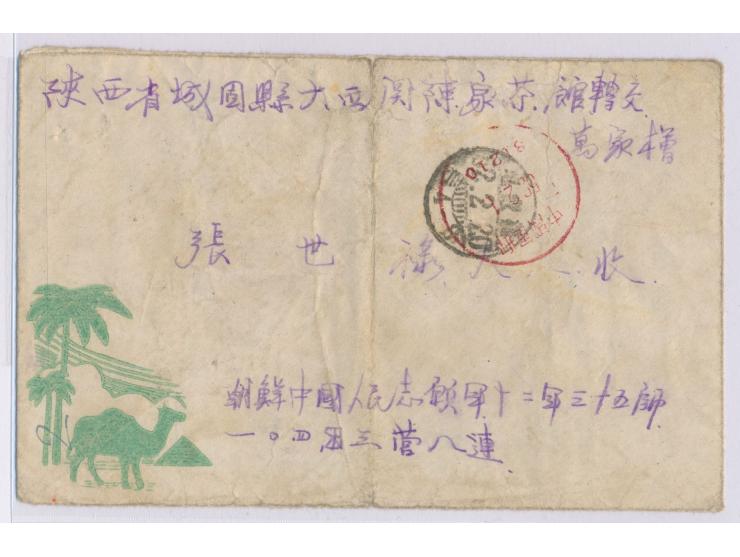 陝西省城固縣大西関陳家茶館轉交
萬家槽
張世祿大人收
朝鮮中國人民志願軍十二軍三十五師
一〇四团三营八連